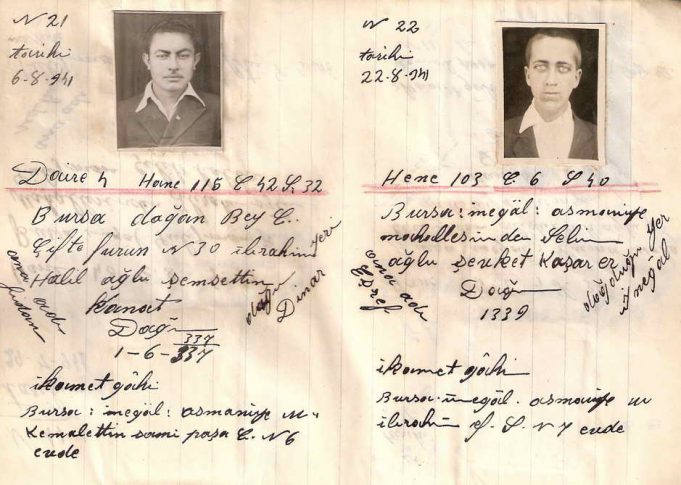 N 21
tarihi
6-8-941
Daire 4 Hane 115 C 42 S. 32
Bursa doğan Bey C.
Çifte furun N 30 ibrahim
Halil oğlu şemsettin
Kanat
Doğ
337
1-6-337
ana adı
doğu yeri
Dinar
ikamet gâhi
Bursa: inegöl: asmaniye m
Kemalettin sami paşa C. N 6
evde
N 22
tarihi
22-8-941
Hene 103 C. 6 S 40
Bursa: inegöl: asmaniye
mahallesinden Selim
oğlu şevket Kaşar er
Doğ
1339
ana adı
Eşref
doğduğu yer
inegöl
ikamet gâhi
Bursa-inegöl. asmaniye m
ibrahim S. N 7 evde